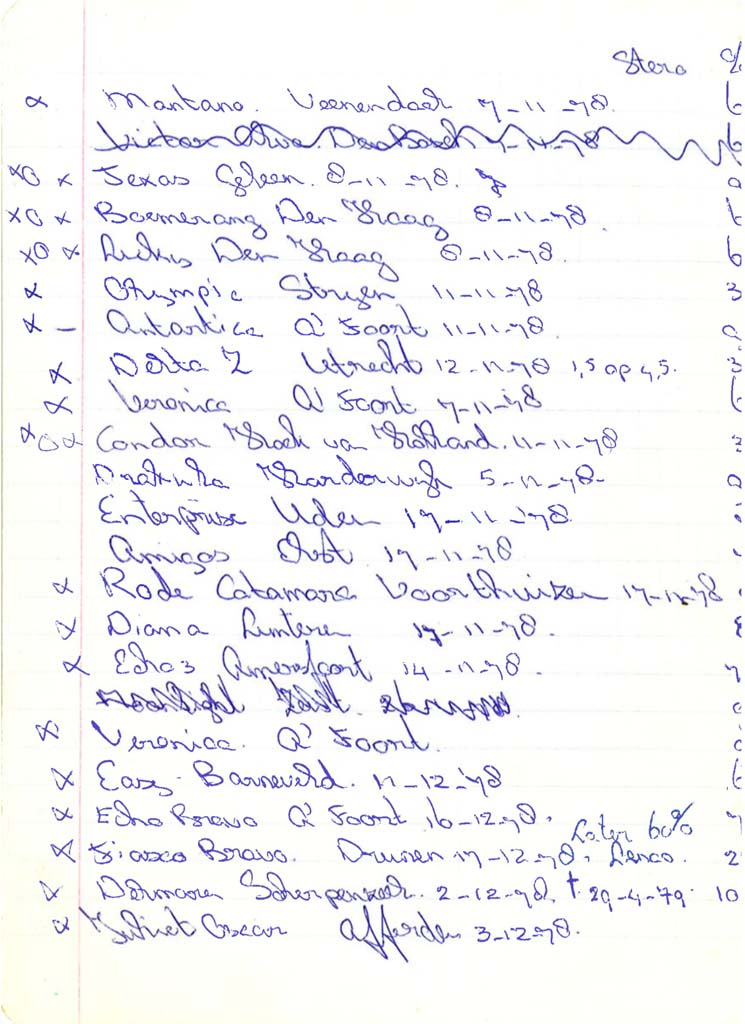 Stero %
x Mantana. Veenendaal 7-11-78. 6
Victor Den Bosch 7-11-78 6
xO x Texas Geleen. 8-11-78. 
xO x Boemerang Den Haag 8-11-78. 6
xO x Luckys Den Haag 8-11-78. 6
x Olympic Stryen 11-11-78 3
x - Antartica A'Foort 11-11-78.
x Delta Z Utrecht 12-11-78 1,5 op 4,5. 3
x Veronica A'Foort 7-11-78 6
xO x Condor Hoek van Holland. 11-11-78
Drakula Harderwijk 5-11-78-
Enterprise Uden 17-11-78
Amigos 17-11-78
x Rode Catamara Voorthuizen 17-11-78
x Diana Lunteren 17-11-78.
x Echo 3 Amersfoort 14-11-78. 7
Moonlight
x Veronica. A'Foort.
x Easy- Barneveld. 11-12-78 6
x Echo Bravo A'Foort 16-12-78. 7
Later 60%
x Fiasco Bravo. Drunen 17-12-78. Lenco. 2
x Scherpenzeel. 2-12-78. † 29-4-79. 10
x Juliet Oscar Afferden 3-12-78.